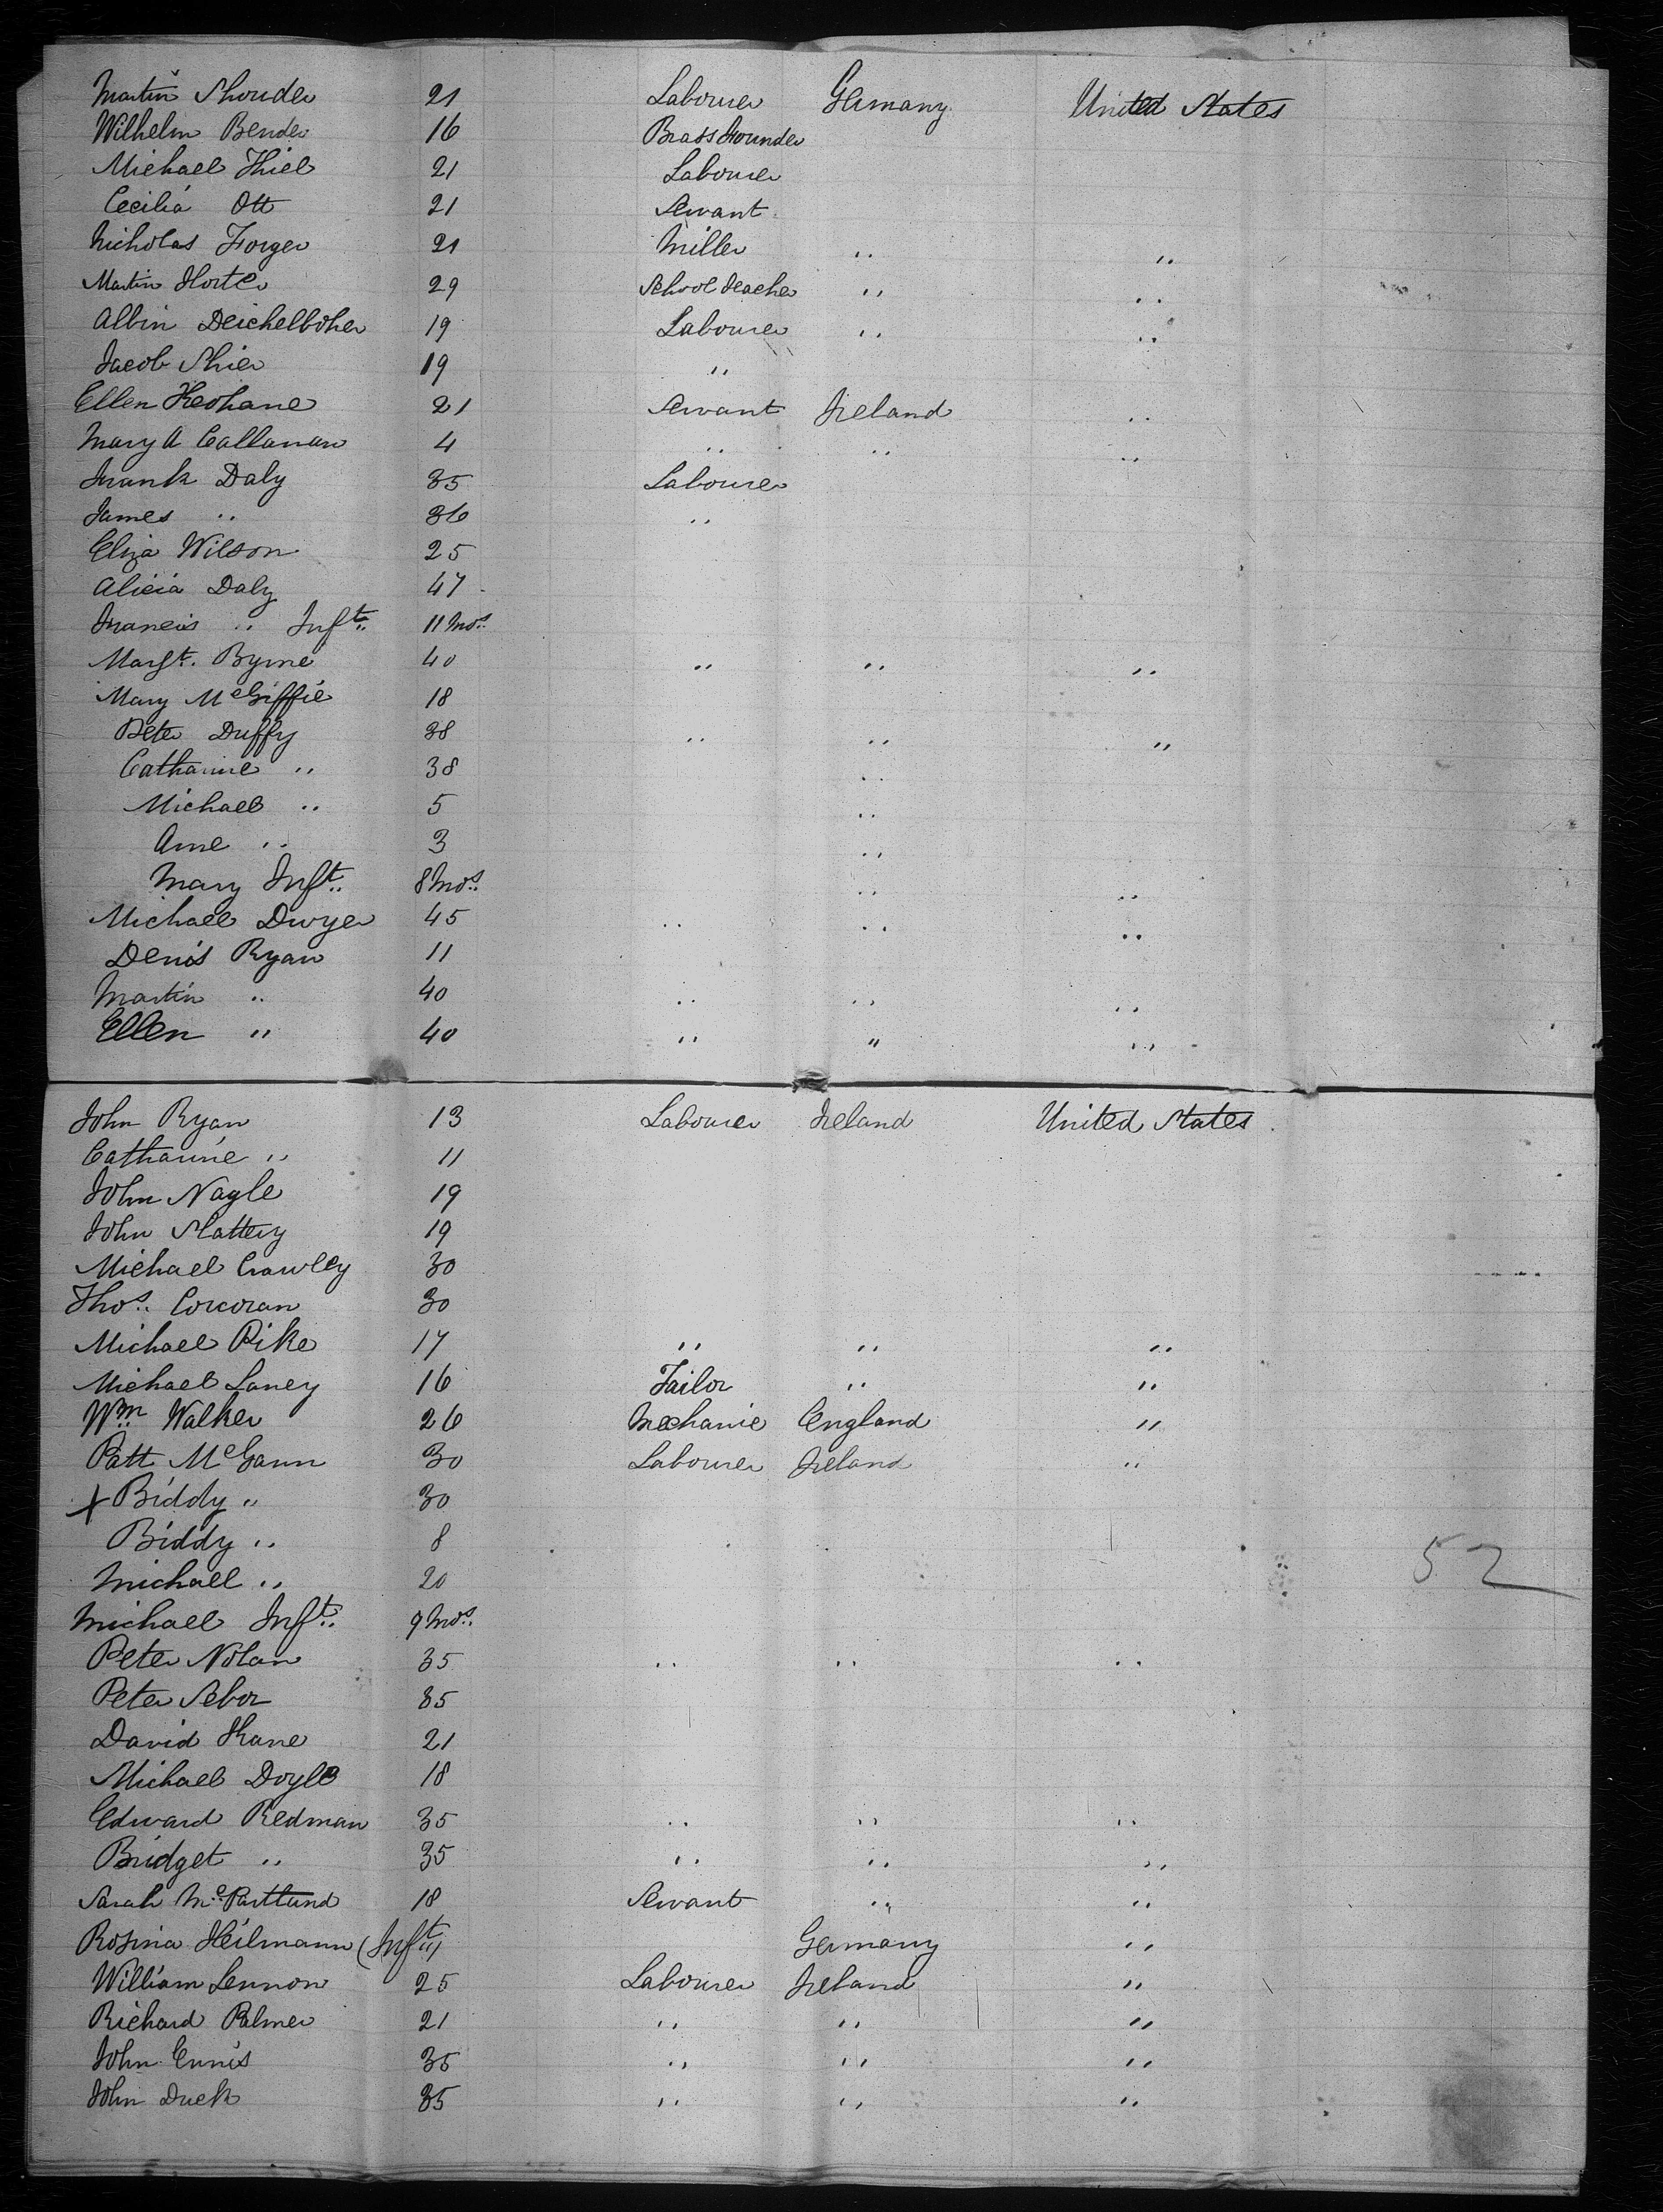 Martin Shouder 21 Labourer Germany United States
Wilhelm Bender 16 Brass Founder
Michael Thiel 21 Labourer
Cecilia Ott 21 Servant
Nicholas Forger 21 Miller " "
Martin Horter 29 School Teacher " "
Albin Deichelboher 19 Labourer " "
Jacob Shier 19 "
Ellen Keohane 21 Servant Ireland "
Mary A Callanan 4 " " "
Frank Daly 35 Labourer
James " 36 "
Eliza Wilson 25
Alicia Daly 47
Francis " Inft. 11 Mos.
Margt. Byrne 40 " " "
Mary McGiffie 18
Peter Duffy 38 " " "
Catharine " 38 "
Michael " 5 "
Anne " 3 "
Mary Inft. 8 Mos. " "
Michael Dwyer 45 " " "
Denis Ryan 11
Martin " 40 " " "
Ellen " 40 " " "
John Ryan 13 Labourer Ireland United States
Catharine " 11
John Nagle 19
John Slattery 19
Michael Crowley 30
Thos. Corcoran 30
Michael Pike 17 " " "
Michael Laney 16 Tailor " "
Wm. Walker 26 Mechanic England "
Patt McGann 30 Labourer Ireland "
X Biddy " 30
Biddy " 8
Michael " 20
Michael Inft. 9 Mos.
Peter Nolan 35 " " "
Peter Sebor 35
David Kane 21
Michael Doyle 18
Edward Redman 35 " " "
Bridget " 35 " " "
Sarah McPartland 18 Servant " "
Rosina Heilmann (Inft) Germany "
William Lennon 25 Labourer Ireland "
Richard Palmer 21 " " "
John Ennis 35 " " "
John Duck 35 " " "
52